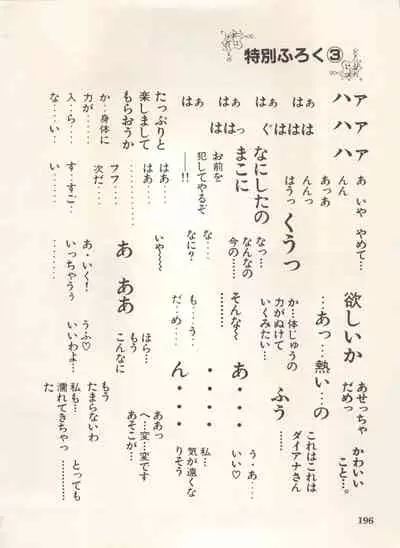 特別ふろく③
ァ ァ ァ
ハ ハ ハ
はぁ はぁ
はぁ はぁ
ぐははは
ははっ
たっぷりと
楽しまして
もらおうか
か‥身体に
力が……
入‥ら……
な……い‥
あ いや やめて…
んん
あっぁ
んんっ
はうっ
なにしたの
まこに
お前を
犯してやるぞ
――!!
はあ…………
はあ……
フフ……
次だ……
す‥すご…
い……
くうっ
なっ…
なんなの
今の……
な……
なに?
いや〜〜
あ ああ
あ・いく!
いっちゃうぅ
欲しいか
…あっ…熱い…の
か…体じゅうの
力がぬけて
いくみたい…
そんな〜
も……う…
だ…め……
ほら…
もう
こんなに
うふ♡
いいわよ…
あせっちゃ
だめっ
かわいい
こと…。
これはこれは
ダイアナさん
ふう
あ・・・・
ん・・・・
う・あ……
いい♡
私…
気が遠くな
りそう
ああっ
へ…変…です
あそこが…
もう
たまらないわ
私も…
濡れてきちゃっ
た
とっても
………
196